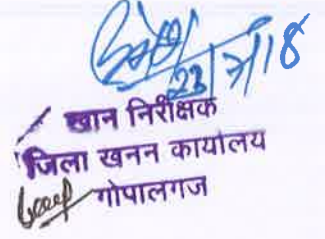 23/7/18
खान निरीक्षक
जिला खनन कार्यालय
गोपालगंज